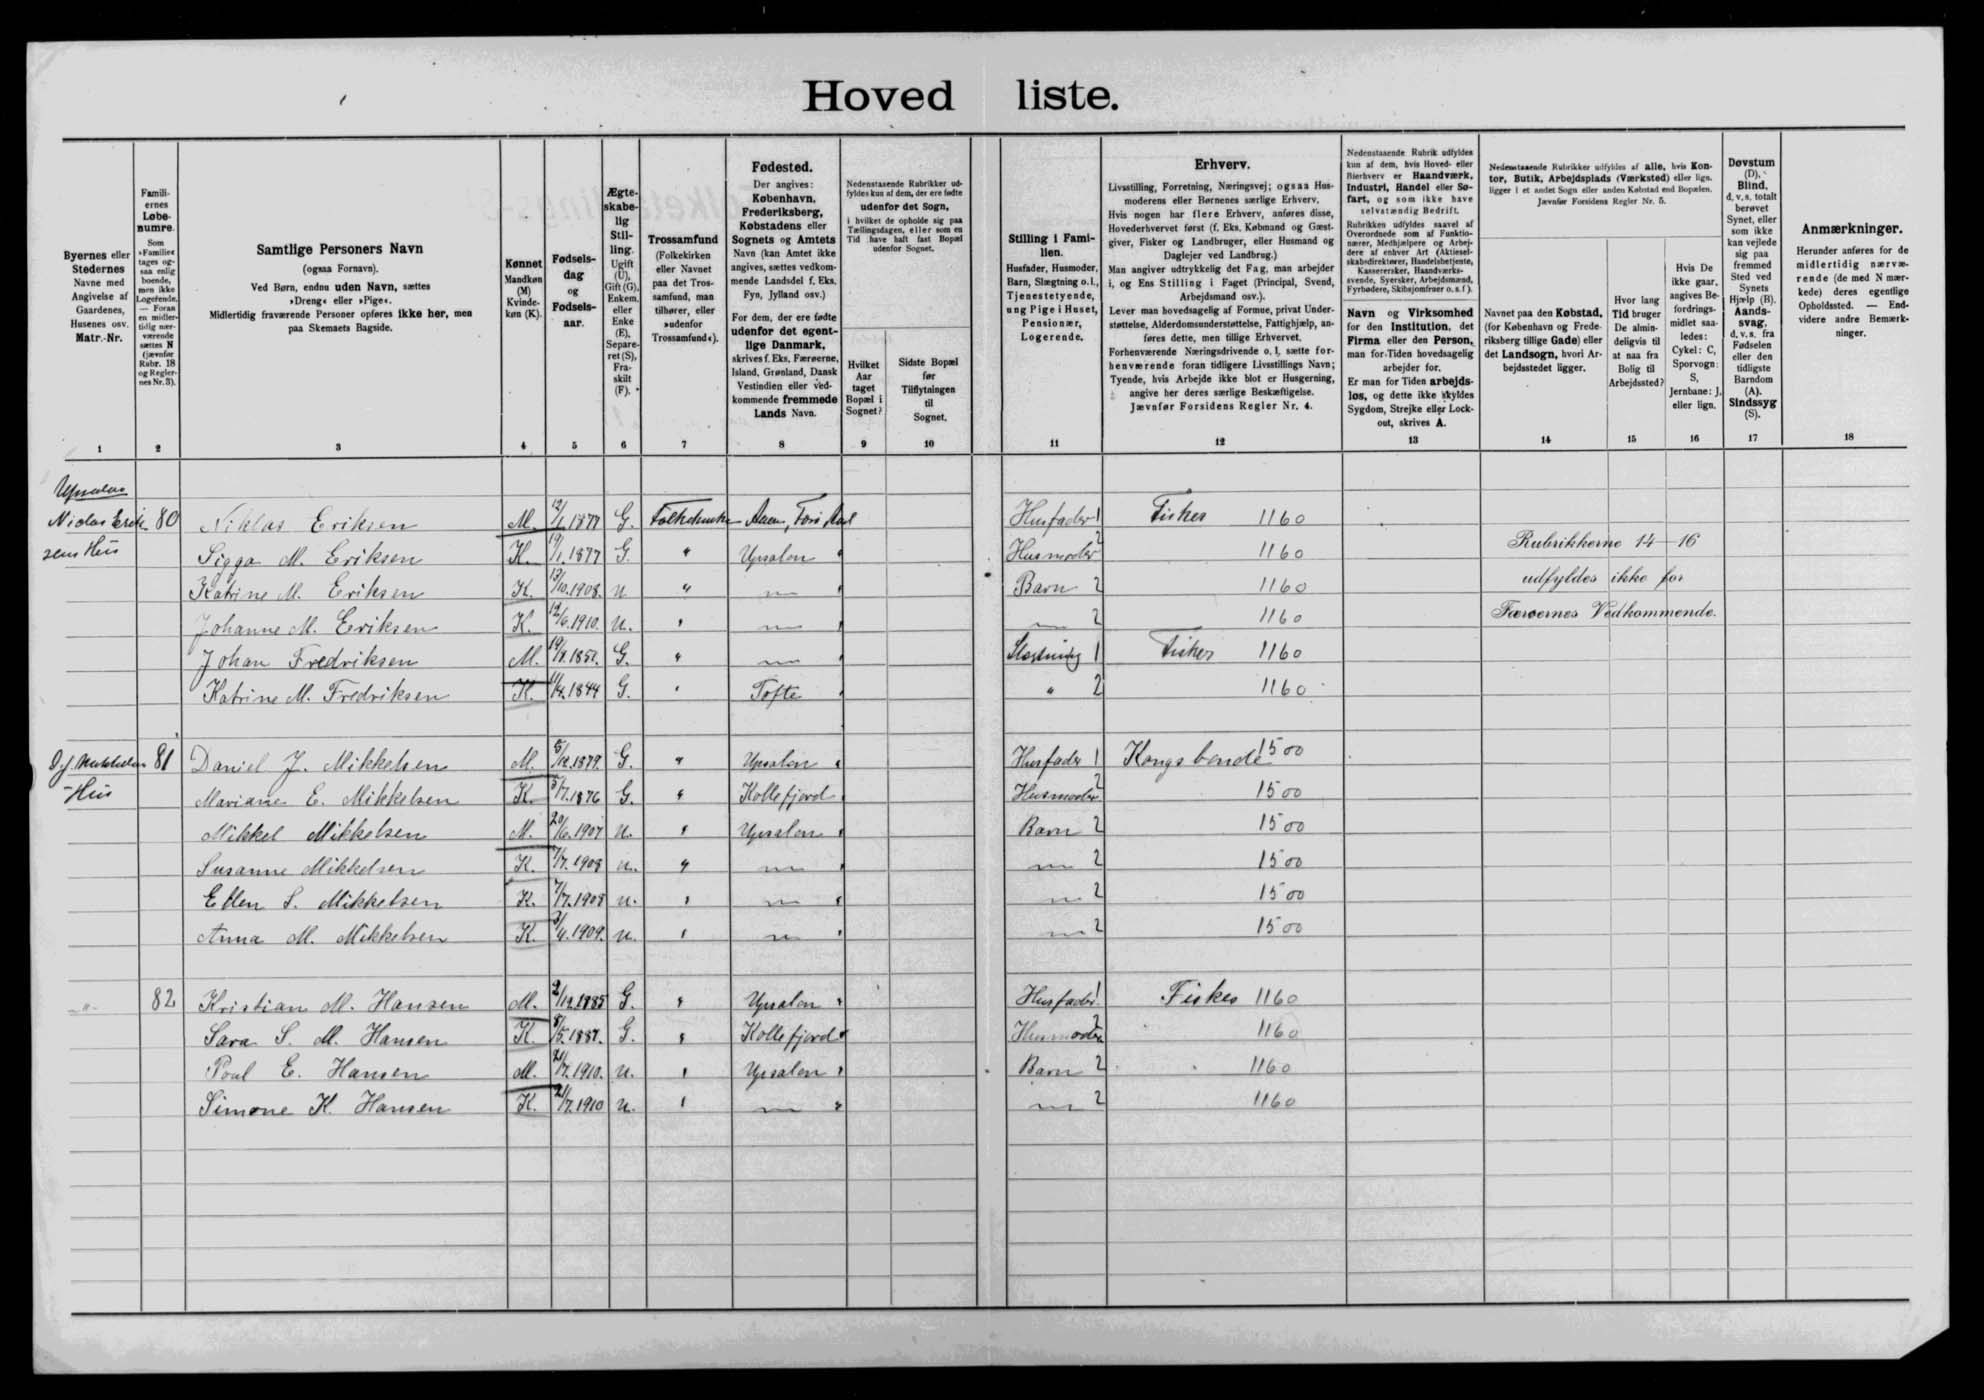 Hoved liste.
Byernes eller Stedernes Navne med Angivelse af Gaardenes, Husenes osv. Matr.-Nr.
Familiernes Løbenumre. Som »Familie« tages ogsaa enlig boende, men ikke Logerende. — Foran en midlertidig nærværende sættes N (jævnfør Rubr. 18 og Regler- nes Nr. 3).
Samtlige Personers Navn
(ogsaa Fornavn).
Ved Børn, endnu uden Navn, sættes
»Dreng« eller »Pige«.
Midlertidig fraværende Personer opføres ikke her, men
paa Skemaets Bagside.
Kønnet Mandkøn (M) Kvindekøn (K).
Fødselsdag og Fødselsaar.
Ægteskabelig Stilling. Ugift (U), Gift (G), Enkem. eller Enke (E), Separeret (S), Fraskilt (F).
Trossamfund (Folkekirken eller Navnet paa det Trossamfund, man tilhører, eller »udenfor Trossamfund«).
Fødested.
Der angives: København, Frederiksberg, Købstadens eller Sognets og Amtets Navn (kan Amtet ikke angives, sættes vedkommende Landsdel f. Eks. Fyn, Jylland osv.)
For dem, der ere fødte udenfor det egentlige Danmark, skrives f. Eks. Færøerne, Island, Grønland, Dansk Vestindien eller vedkommende fremmede Lands Navn.
Nedenstaaende Rubrikker udfyldes kun af dem, der ere fødte udenfor det Sogn, i hvilket de opholde sig paa Tællingsdagen, eller som en Tid have haft fast Bopæl udenfor Sognet.
Hvilket Aar taget Bopæl i Sognet?
Sidste Bopæl før Tilflytningen til Sognet.
Stilling i Familien.
Husfader, Husmoder, Barn, Slægtning o.l., Tjenestetyende, ung Pige i Huset, Pensionær, Logerende.
Erhverv.
Livsstilling, Forretning, Næringsvej; ogsaa Husmoderens eller Børnenes særlige Erhverv.
Hvis nogen har flere Erhverv, anføres disse, Hovederhvervet først (f. Eks. Købmand og Gæstgiver, Fisker og Landbruger, eller Husmand og Daglejer ved Landbrug.)
Man angiver udtrykkelig det Fag, man arbejder i, og Ens Stilling i Faget (Principal, Svend, Arbejdsmand osv.).
Lever man hovedsagelig af Formue, privat Understøttelse, Alderdomsunderstøttelse, Fattighjælp, anføres dette, men tillige Erhvervet.
Forhenværende Næringsdrivende o. l. sætte forhenværende foran tidligere Livsstillings Navn; Tyende, hvis Arbejde ikke blot er Husgerning, angive her deres særlige Beskæftigelse.
Jævnfør Forsidens Regler Nr. 4.
Nedenstaaende Rubrik udfyldes kun af dem, hvis Hoved- eller Bierhverv er Haandværk, Industri, Handel eller Søfart, og som ikke have selvstændig Bedrift.
Rubrikken udfyldes saavel af Overordnede som af Funktionærer, Medhjælpere og Arbejdere af enhver Art (Aktieselskabsdirektører, Handelsbetjente, Kasserersker, Haandværkssvende, Syersker, Arbejdsmænd, Fyrbødere, Skibsjomfruer o. s. f.).
Navn og Virksomhed for den Institution, det Firma eller den Person, man for Tiden hovedsagelig arbejder for.
Er man for Tiden arbejdsløs, og dette ikke skyldes Sygdom, Strejke eller Lockout, skrives A.
Nedenstaaende Rubrikker udfyldes af alle, hvis Kontor, Butik, Arbejdsplads (Værksted) eller lign. ligger i et andet Sogn eller anden Købstad end Bopælen. Jævnfør Forsidens Regler Nr. 5.
Navnet paa den Købstad, (for København og Frederiksberg tillige Gade) eller det Landsogn, hvori Arbejdsstedet ligger.
Hvor lang Tid bruger De almindeligvis til at naa fra Bolig til Arbejdssted?
Hvis De ikke gaar, angives Befordringsmidlet saaledes: Cykel: C, Sporvogn: S, Jernbane: J, eller lign.
Døvstum (D), Blind, d. v. s. totalt berøvet Synet, eller som ikke kan vejlede sig paa fremmed Sted ved Synets Hjælp (B). Aandssvag, d. v. s. fra Fødselen eller den tidligste Barndom (A). Sindssyg (S).
Anmærkninger.
Herunder anføres for de midlertidig nærværende (de med N mærkede) deres egentlige Opholdssted. — Endvidere andre Bemærkninger.
1 2 3 4 5 6 7 8 9 10 11 12 13 14 15 16 17 18
80 Niklas Eriksen M. 12/1.1877 G. Folkekirken Husfader 1 Fisker 1160
sens Hus Sigga M. Eriksen K. 19/1.1877 G. " Upsalon " Husmoder 2 1160 Rubrikkerne 14-16
Katrine M. Eriksen K. 13/10.1908. U " " Barn 2 1160 udfyldes ikke for
Johanne M. Eriksen K. 12/6.1910. U. " " 2 1160 Færøernes Vedkommende.
Johan Fredriksen M. G. " " Slægtning 1 Fisker 1160
Katrine M. Fredriksen K. 11/4.1844 G. " Tofte " " 2 1160
D. J. Mikkelsen 81 Daniel J. Mikkelsen M. 5/12.1879. G. " Upsalon " Husfader 1 Kongsbonde 1500
Hus Mariane E. Mikkelsen K. 5/7.1876 G. " Kollefjord " Husmoder 2 1500
Mikkel Mikkelsen M. 20/6.1907 U. " Upsalon " Barn 2 1500
Susanne Mikkelsen K. 7/7.1908 U. " " 2 1500
Ellen S. Mikkelsen K. 7/7.1908 U. " " 2 1500
Anna M. Mikkelsen K. 3/4.1909. U. " " 2 1500
-"- 82 Kristian M. Hansen M. 2/12.1885 G. " Upsalon " Husfader 1 Fisker 1160
Sara S. M. Hansen K. 8/5.1887. G. " Kollefjord " Husmoder 2 1160
Poul E. Hansen M. 21/7.1910. U. " Upsalon " Barn 2 1160
Simone K. Hansen K. 21/7.1910 U. " " 2 1160